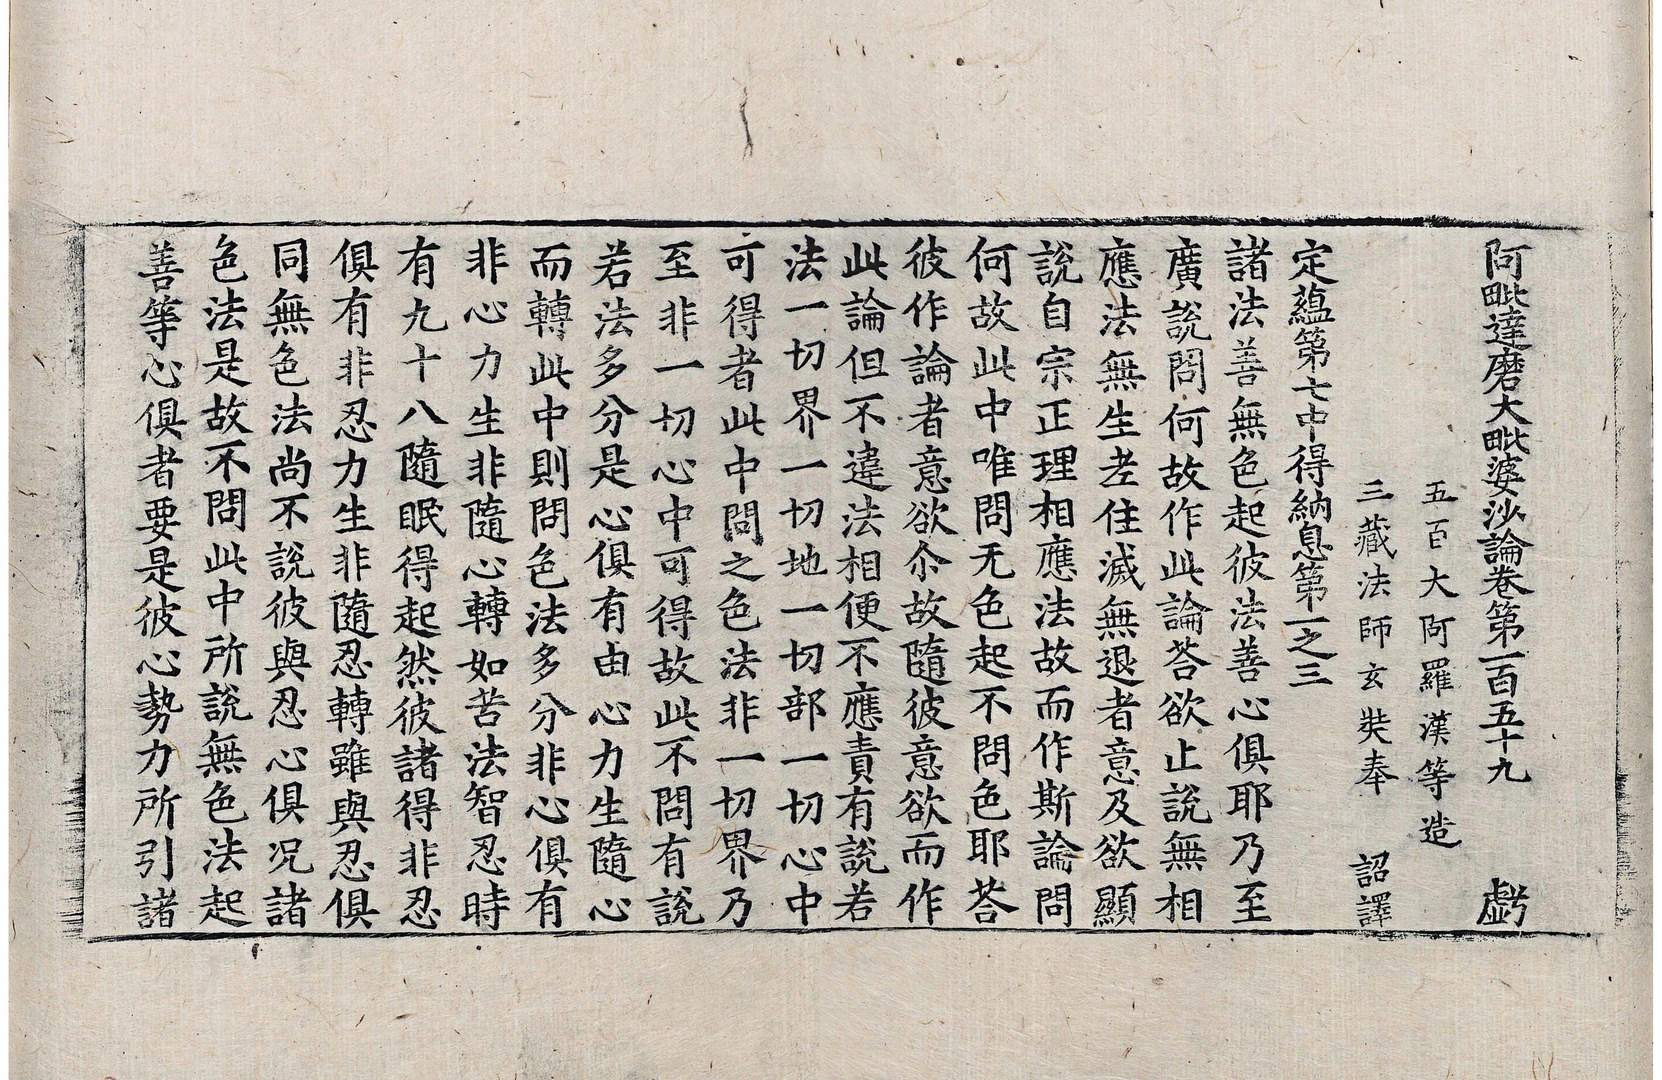 阿毗達磨大毗婆沙論卷第一百五十九 虧
五百大阿羅漢等造
三藏法師玄奘奉 詔譯
定蘊第七中得納息第一之三
諸法善無色起彼法善心俱耶乃至
廣說問何故作此論荅欲止說無相
應法無生老住滅無退者意及欲顯
說自宗正理相應法故而作斯論問
何故此中唯問无色起不問色耶荅
彼作論者意欲尒故隨彼意欲而作
此論但不違法相便不應責有說若
法一切界一切地一切部一切心中
可得者此中問之色法非一切界乃
至非一切心中可得故此不問有說
若法多分是心俱有由心力生隨心
而轉此中則問色法多分非心俱有
非心力生非隨心轉如苦法智忍時
有九十八隨眠得起然彼諸得非忍
俱有非忍力生非隨忍轉雖與忍俱
同無色法尚不說彼與忍心俱況諸
色法是故不問此中所說無色法起
善等心俱者要是彼心勢力所引諸